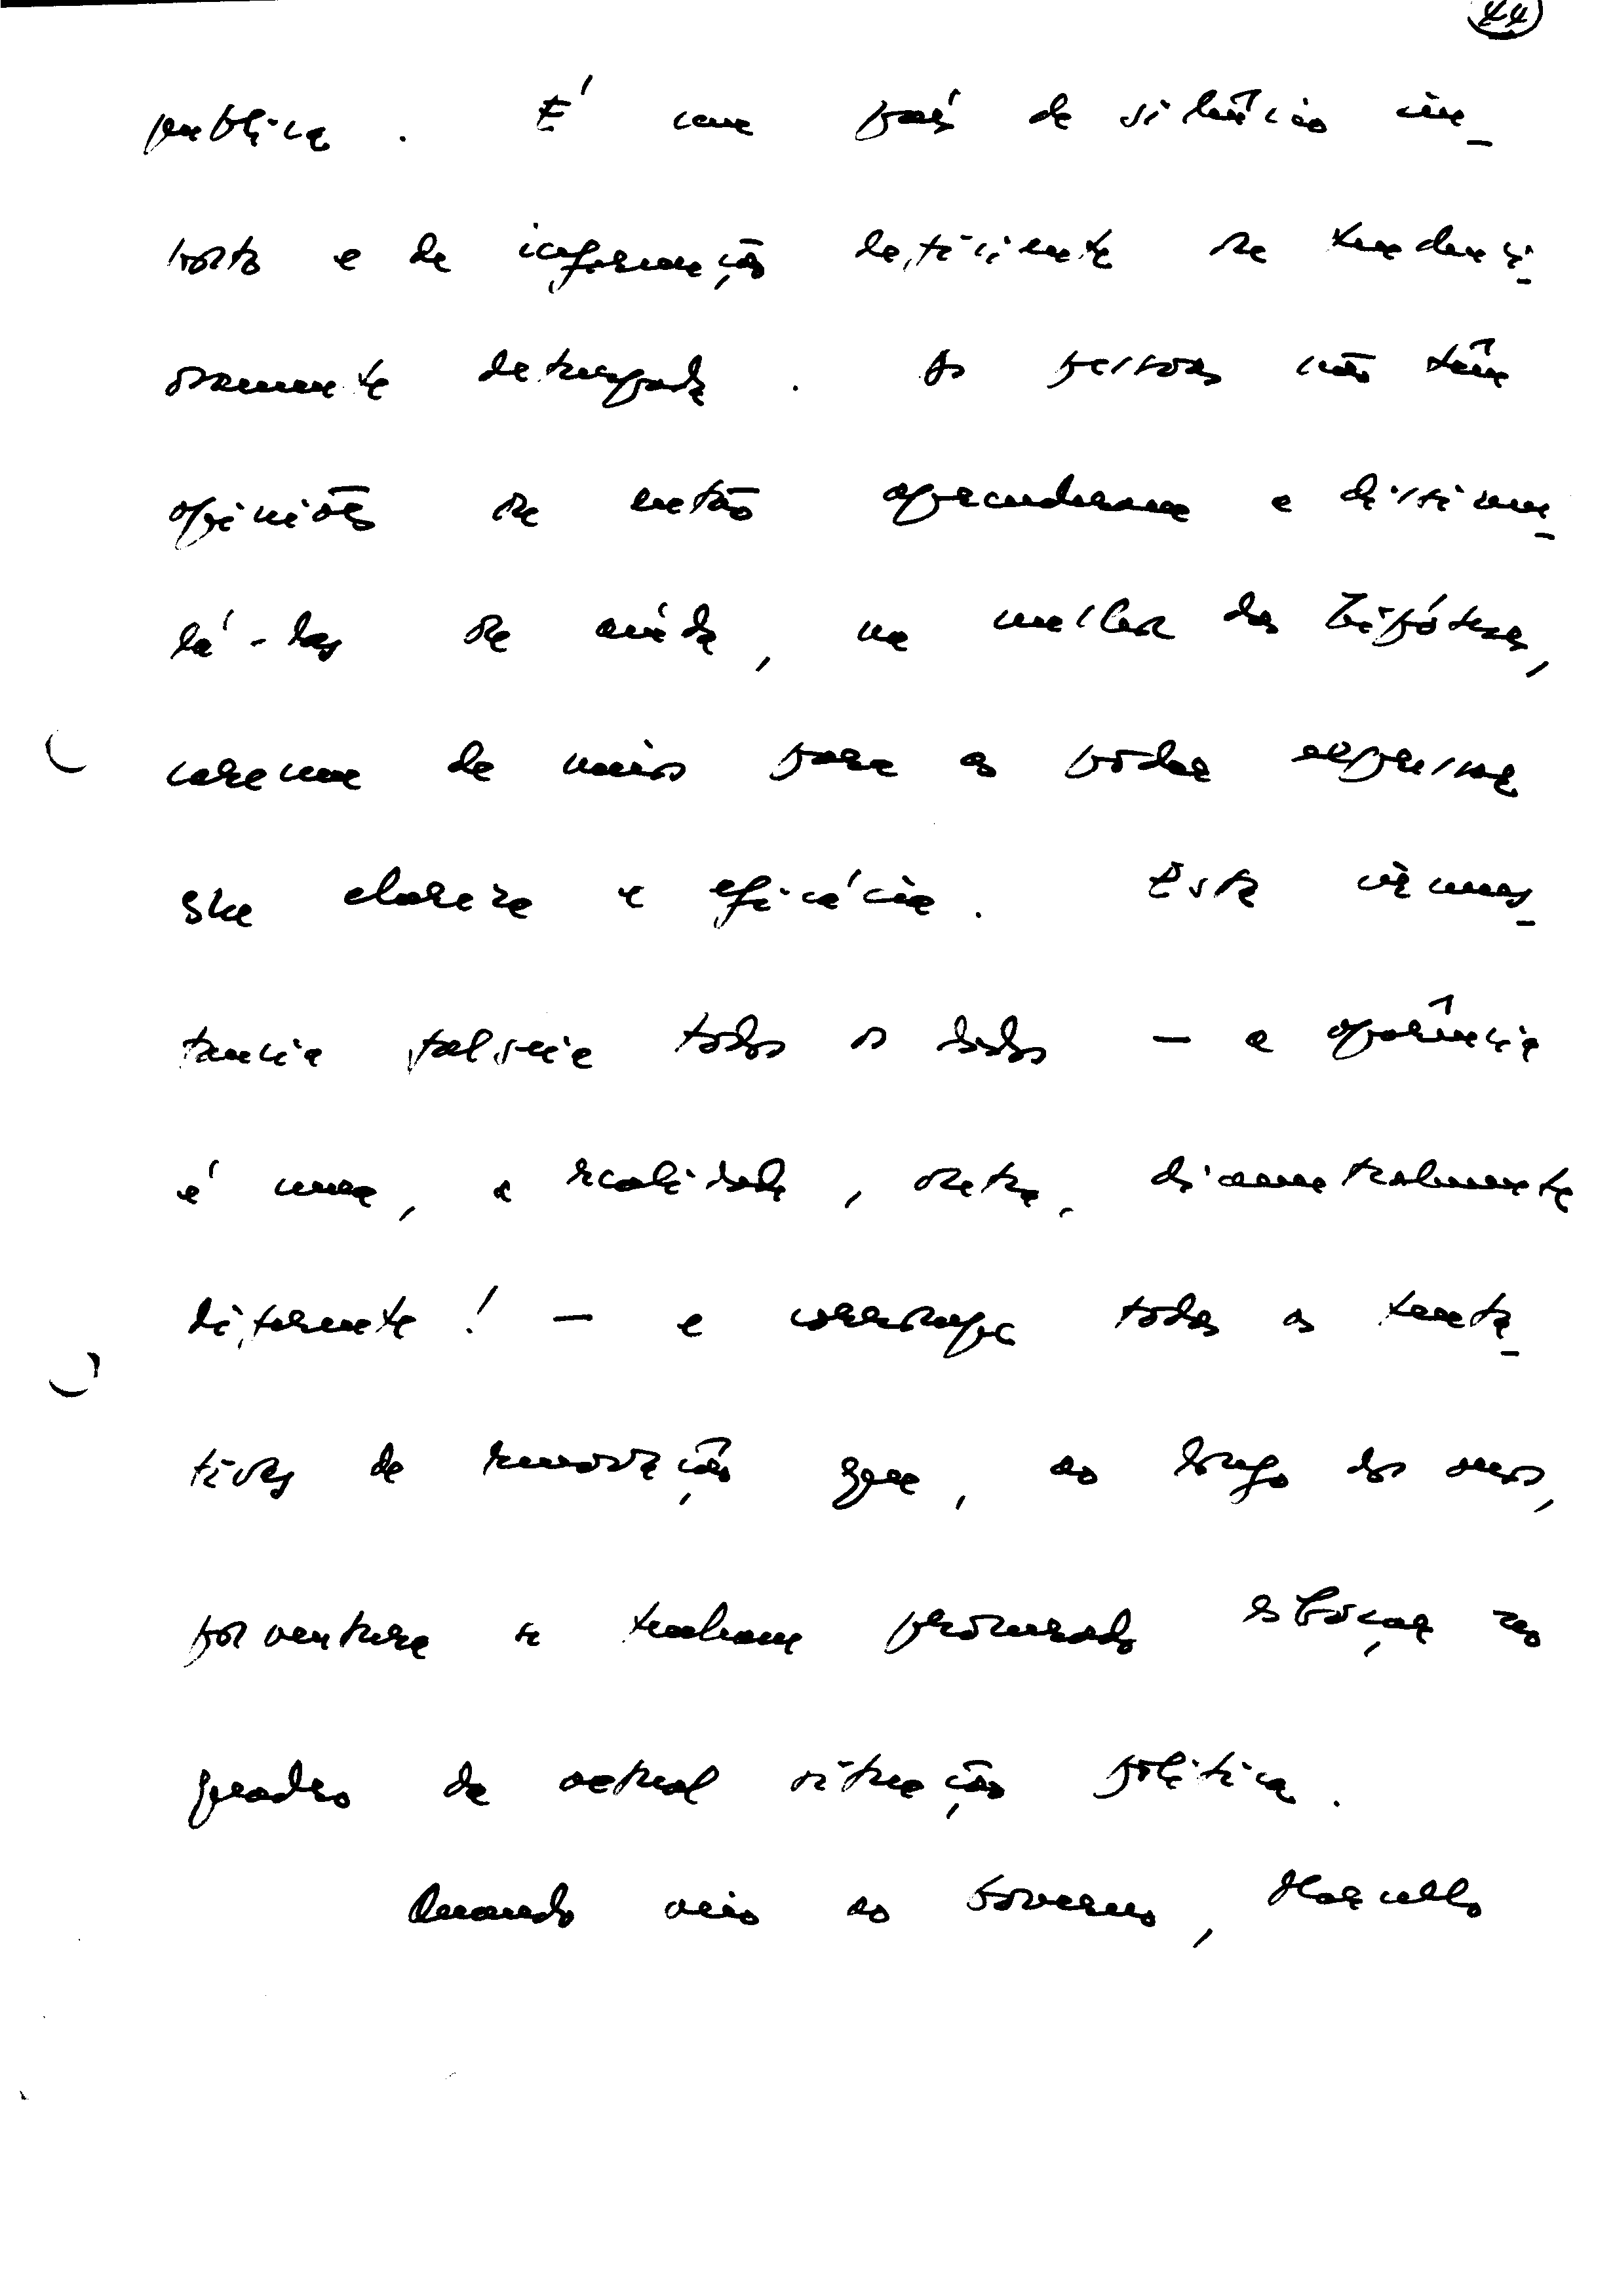 44
publica. É um país de silêncio im-
posto e de informação deficiente ou tendenci-
osamente deturpada. As pessoas não têm
opiniões ou então aprenderam e dissimu-
lá-las ou ainda, na melhor das hipóteses,
carecem de meios para as poder expressar
com clareza e eficácia. Esta circuns-
tancia falseia todos os dados — a aparência
é uma, a realidade, outra, diametralmente
diferente! — e corrompe todas as tenta-
tivas de renovação que, ao longo dos anos,
porventura se tenham procurado esboçar no
quadro da actual situação política.
Quando veio ao Governo, Marcello